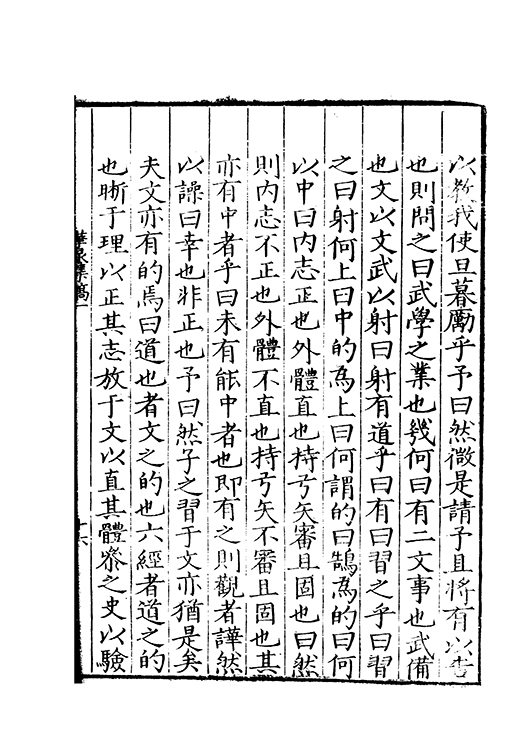 以教我使旦暮勵乎予曰然微是請予且將有以告
也則問之曰武學之業也幾何曰有二文事也武備
也文以文武以射曰射有道乎曰有曰習之乎曰習
之曰射何上曰中的為上曰何謂的曰鵠為的曰何
以中曰内志正也外體直也持弓矢審且固也曰然
則内志不正也外體不直也持弓矢不審且固也其
亦有中者乎曰未有能中者也即有之則觀者譁然
以譟曰幸也非正也予曰然子之習于文亦猶是矣
夫文亦有的焉曰道也者文之的也六經者道之的
也晰于理以正其志放于文以直其體叅之史以驗
華泉集稿一
十六